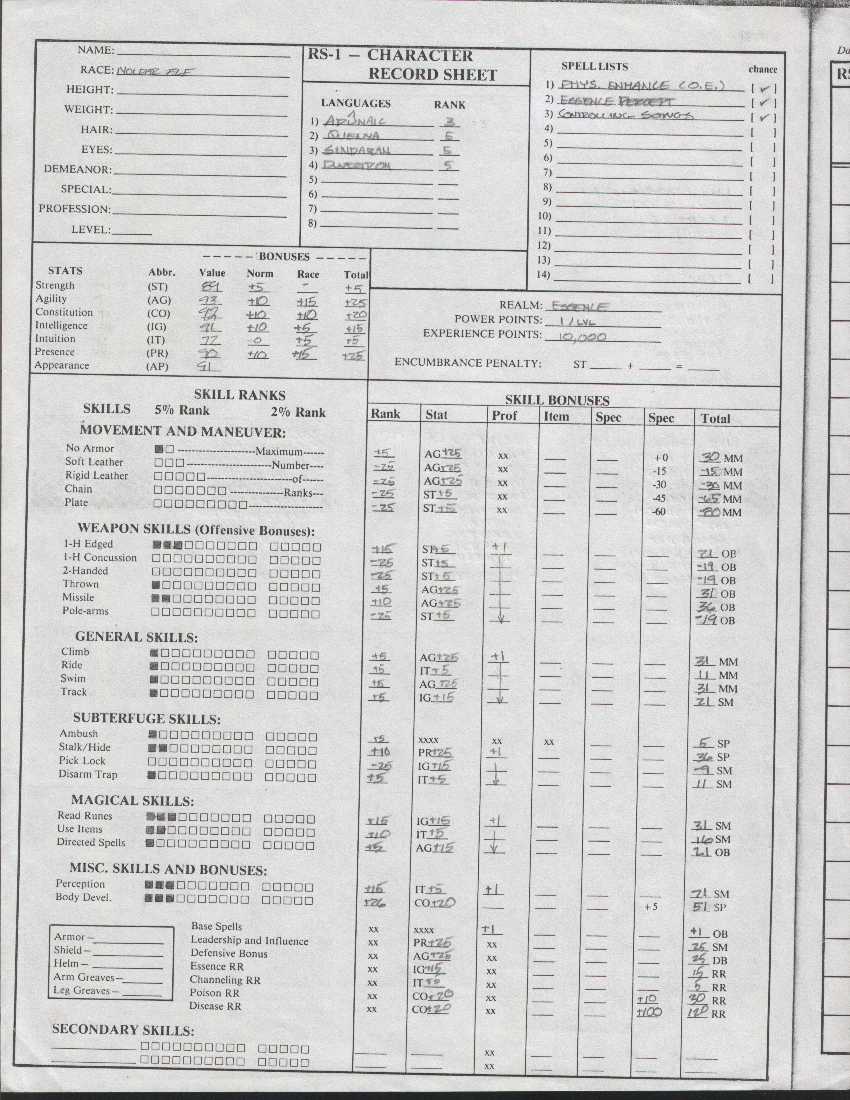 NAME:
RACE: NOLDAR ELF
HEIGHT:
WEIGHT:
HAIR:
EYES:
DEMEANOR:
SPECIAL:
PROFESSION:
LEVEL:
RS-1 – CHARACTER
RECORD SHEET
LANGUAGES RANK
1) ADÛNAIC 3
2) QUENYA 5
3) SINDARAN 5
4) 5
5)
6)
7)
8)
SPELL LISTS chance
1) PHYS. ENHANCE (O.E.) [ ✓ ]
2) ESSENCE PERCEPT [ ✓ ]
3) CONTROLLING SONGS [ ✓ ]
4) [ ]
5) [ ]
6) [ ]
7) [ ]
8) [ ]
9) [ ]
10) [ ]
11) [ ]
12) [ ]
13) [ ]
14) [ ]
– – – – – BONUSES – – – – –
STATS Abbr. Value Norm Race Total
Strength (ST) +5 - +5
Agility (AG) 93 +10 +15 +25
Constitution (CO) +10 +10 +20
Intelligence (IG) 91 +10 +5 +15
Intuition (IT) 77 0 +5 +5
Presence (PR) 90 +10 +15 +25
Appearance (AP) 91
REALM: ESSENCE
POWER POINTS: 1 / LVL
EXPERIENCE POINTS: 10,000
ENCUMBRANCE PENALTY: ST + =
SKILL RANKS
SKILLS 5% Rank 2% Rank
SKILL BONUSES
Rank Stat Prof Item Spec Spec Total
MOVEMENT AND MANEUVER:
No Armor Maximum +5 AG+25 xx +0 30 MM
Soft Leather Number -25 AG+25 xx -15 -15 MM
Rigid Leather of -25 AG+25 xx -30 -30 MM
Chain Ranks -25 ST+5 xx -45 -65 MM
Plate -25 ST+5 xx -60 -80 MM
WEAPON SKILLS (Offensive Bonuses):
1-H Edged +15 ST+5 +1 21 OB
1-H Concussion -25 ST+5 -19 OB
2-Handed -25 ST+5 -19 OB
Thrown +5 AG+25 31 OB
Missile +10 AG+25 36 OB
Pole-arms -25 ST+5 -19 OB
GENERAL SKILLS:
Climb +5 AG+25 +1 31 MM
Ride +5 IT+5 11 MM
Swim +5 AG+25 31 MM
Track +5 IG+15 21 SM
SUBTERFUGE SKILLS:
Ambush +5 xxxx xx xx 5 SP
Stalk/Hide +10 PR+25 +1 36 SP
Pick Lock -25 IG+15 -9 SM
Disarm Trap +5 IT+5 11 SM
MAGICAL SKILLS:
Read Runes +15 IG+15 +1 31 SM
Use Items +10 IT+5 16 SM
Directed Spells +5 AG+15 21 OB
MISC. SKILLS AND BONUSES:
Perception +15 IT+5 +1 21 SM
Body Devel. +26 CO+20 +5 51 SP
Base Spells xx xxxx +1 +1 OB
Leadership and Influence xx PR+25 xx 25 SM
Defensive Bonus xx AG+25 xx 25 DB
Essence RR xx IG+15 xx 15 RR
Channeling RR xx IT+5 xx 5 RR
Poison RR xx CO+20 xx +10 30 RR
Disease RR xx CO+20 xx +100 120 RR
Armor –
Shield –
Helm –
Arm Greaves –
Leg Greaves –
SECONDARY SKILLS:
xx
xx